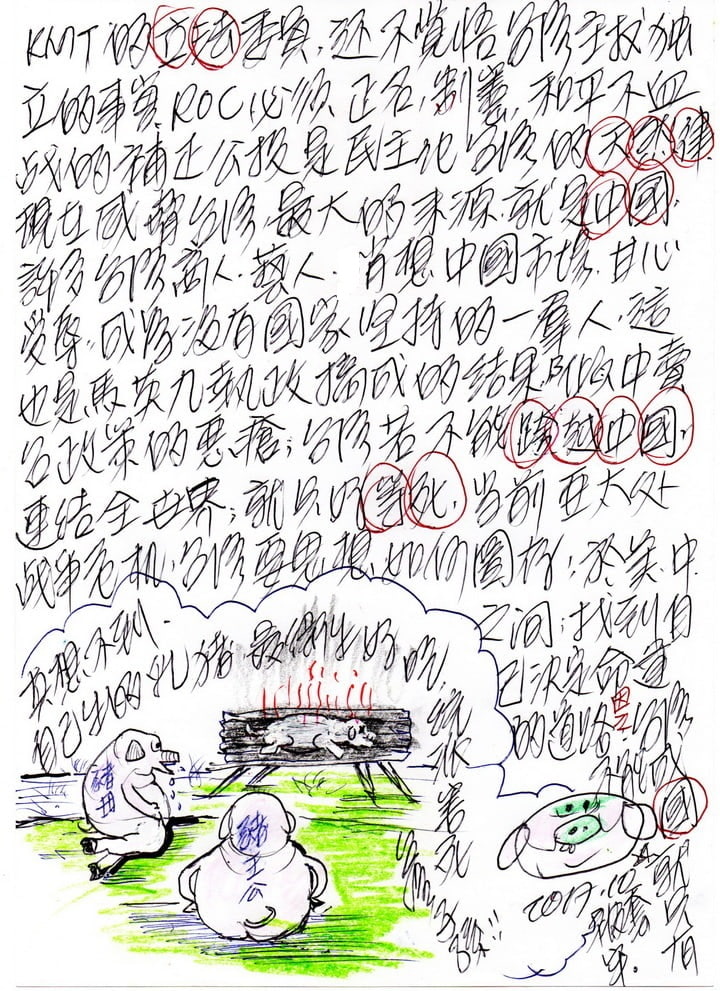 KMT的立法委員,还不覺悟台湾主权独
立的事美,ROC必须正名,制憲,和平不血
战的補正公投是民主化台湾的天然律.
現在威脅台湾最大的來源就是中國,
許多台湾商人.藝人.肖想中國市场.甘心
受辱,成為没有國家坚持的一羣人.這
也是馬英九執政搞成的結果.
台政策的惡瘡;台湾若不能跨越中國,
連結全世界;就只好等死,当前亞太处
战争危机,台湾要思想如何圖存;於美.中
之间;找到自
己決定命運
的道路.
國
真想不到.
自己生的乳豬最後生好吃
豬母
豬王公
2017.10